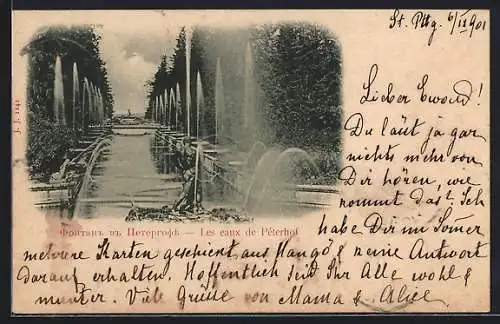 St. Pttg. 6/II 901
J. J. 1242
Lieber Ewald!
Du läut ja gar
nichts mehr von
Dir hören, wie
kommt das? Ich
habe Dir im Somer
Фонтанъ въ Петергофѣ. — Les eaux de Péterhof
mehrere Karten geschickt aus Hangö & keine Antwort
darauf erhalten. Hoffentlich seid Ihr Alle wohl &
munter. Viele Grüsse von Mama & Alice.